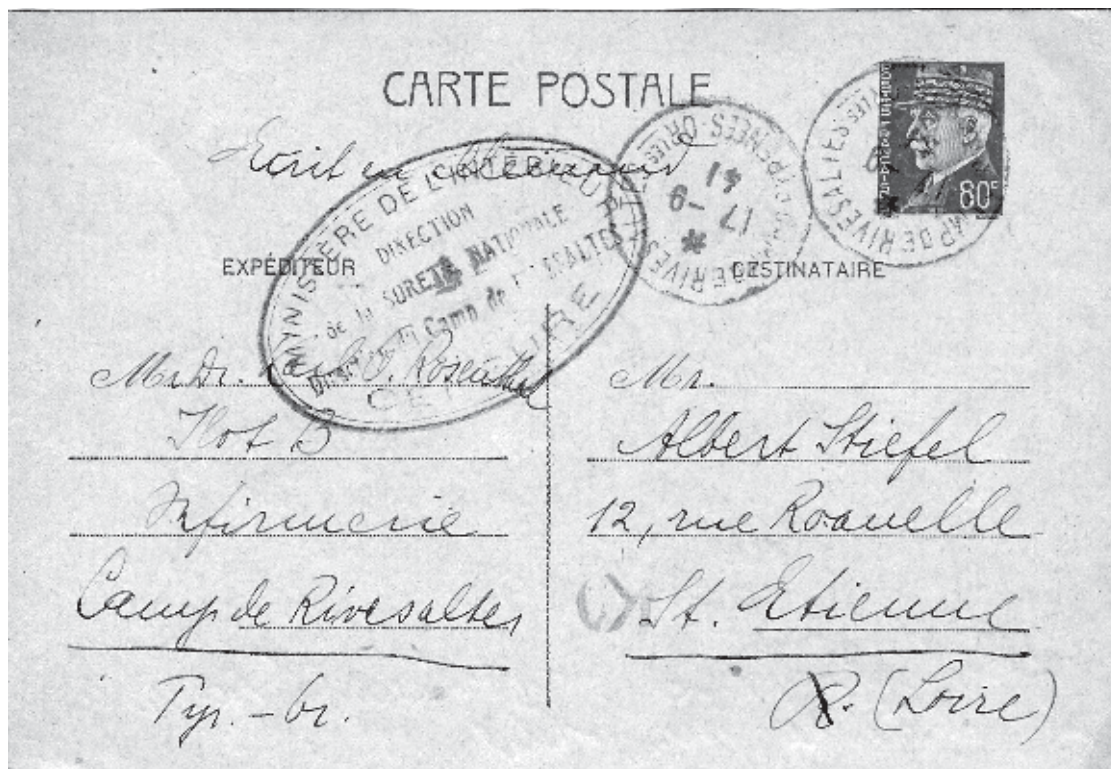 CARTE POSTALE
Ecrit en allemand
MINISTÈRE DE L'INTÉRIEUR
DIRECTION
de la SURETÉ NATIONALE
Camp de RIVESALTES
CENSURE
CAMP DE RIVESALTES
PYRÉNÉES-ORLES
17 -9
41
CAMP DE RIVESALTES
80c
EXPÉDITEUR
Mr. Dr. Rosenthal
Ilot B
Infirmerie
Camp de Rivesaltes
Pyr. - Or.
DESTINATAIRE
Mr.
Albert Stiefel
12, rue Roanelle
St. Etienne
(Loire)